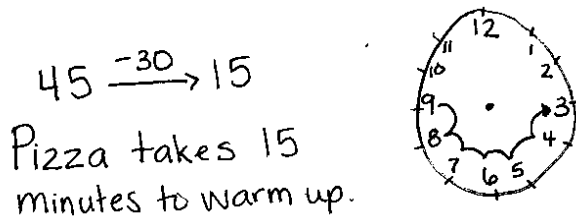 45 -30→ 15
Pizza takes 15
minutes to warm up.
12
1
2
3
4
5
6
7
8
9
10
11